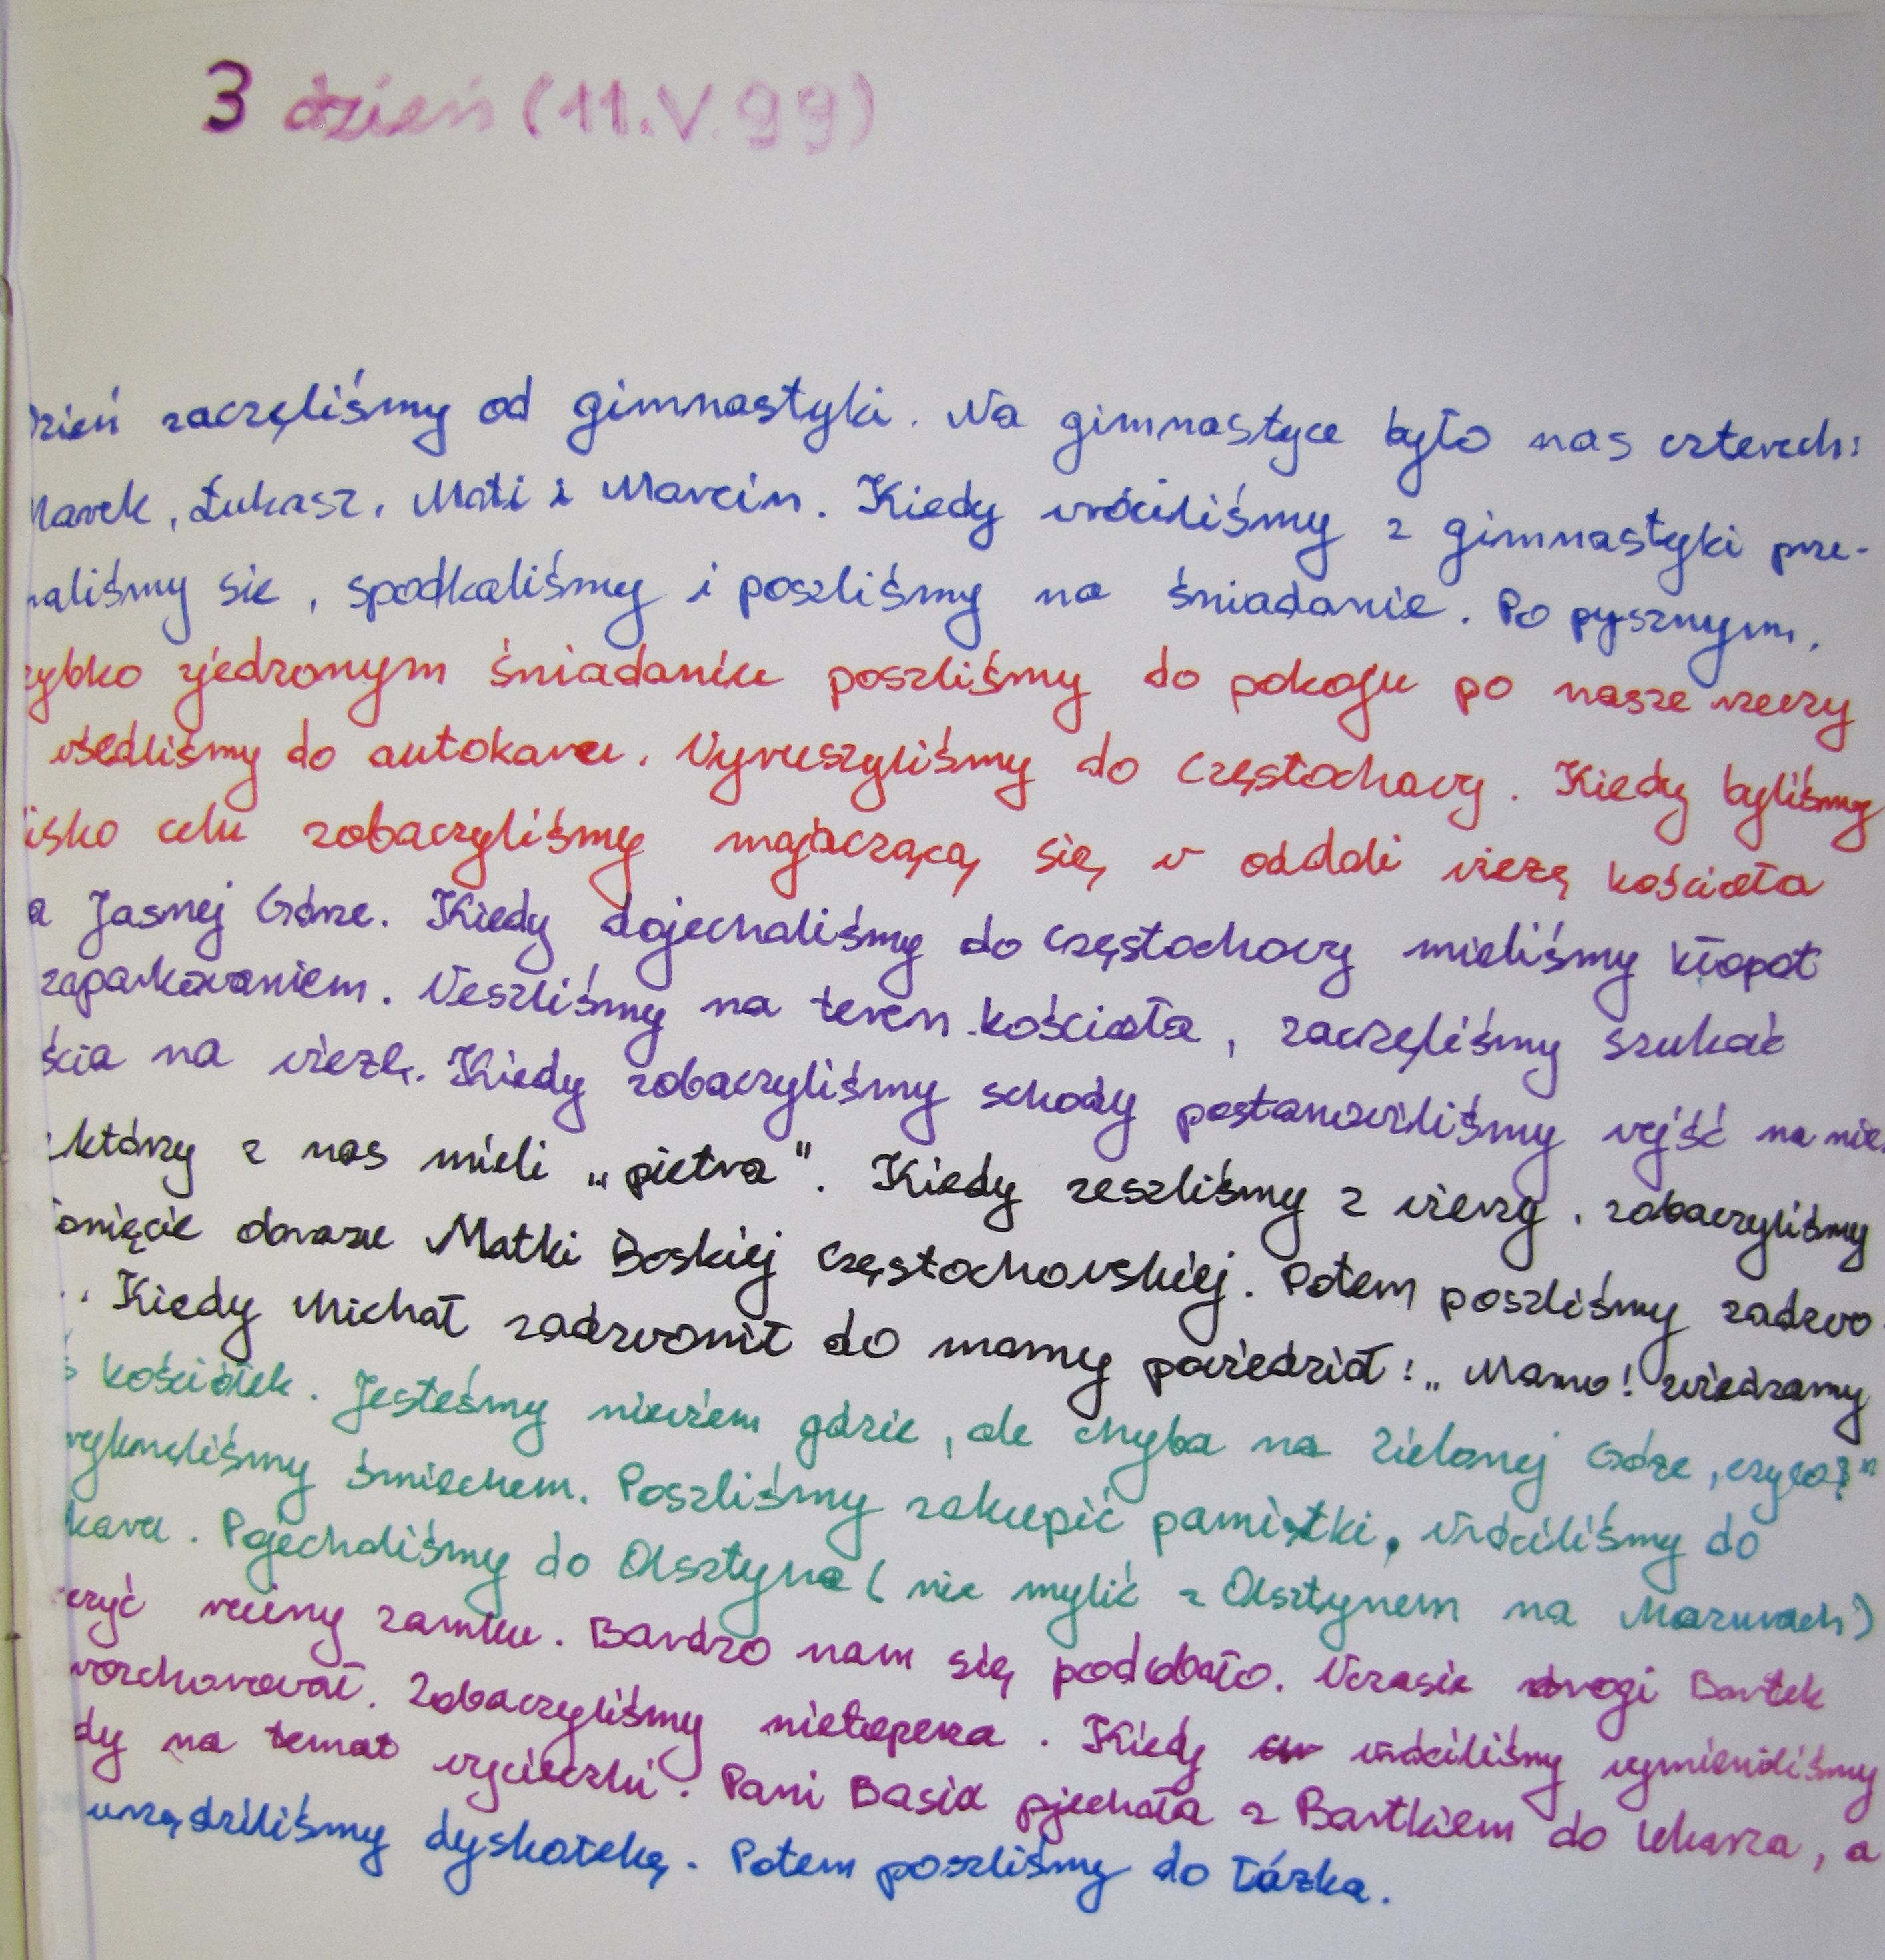 3 dzień (11.V.99)
Dzień zaczęliśmy od gimnastyki. Na gimnastyce było nas czterech:
Marek, Łukasz, Mati i Marcin. Kiedy wróciliśmy z gimnastyki prze-
haliśmy sie, spodkaliśmy i poszliśmy na śniadanie. Po pysznym,
zybko zjedzonym śniadaniu poszliśmy do pokoju po nasze rzeczy
wśedliśmy do autokaru. Wyruszyliśmy do Częstochowy. Kiedy byliśmy
isko celu zobaczyliśmy majaczącą się w oddali wieżę kościoła
a Jasnej Górze. Kiedy dojechaliśmy do Częstochowy mieliśmy kłopot
zaparkowaniem. Weszliśmy na teren kościoła, zaczęliśmy szukać
ścia na wieżę. Kiedy zobaczyliśmy schody postanowiliśmy wejść na nie.
którzy z nas mieli „pietra". Kiedy zeszliśmy z wieży, zobaczyliśmy
onięcie obrazu Matki Boskiej Częstochowskiej. Potem poszliśmy zadzwo
.. Kiedy Michał zadzwonił do mamy powiedział: „Mamo! zwiedzamy
ś kościółek. Jesteśmy niewiem gdzie, ale chyba na Zielonej Górze, czyco?"
wykneliśmy śmiechem. Poszliśmy zakupić pamiątki, wróciliśmy do
karu. Pojechaliśmy do Olsztyna (nie mylić z Olsztynem na Mazurach)
czyć ruiny zamku. Bardzo nam się podobało. Wczasie drogi Bartek
rozchorował. Zobaczyliśmy nietoperza. Kiedy wróciliśmy wymieniliśmy
dy na temat wycieczki. Pani Basia pjechała z Bartkiem do lekarza, a
urządziliśmy dyskotekę. Potem poszliśmy do łóżka.